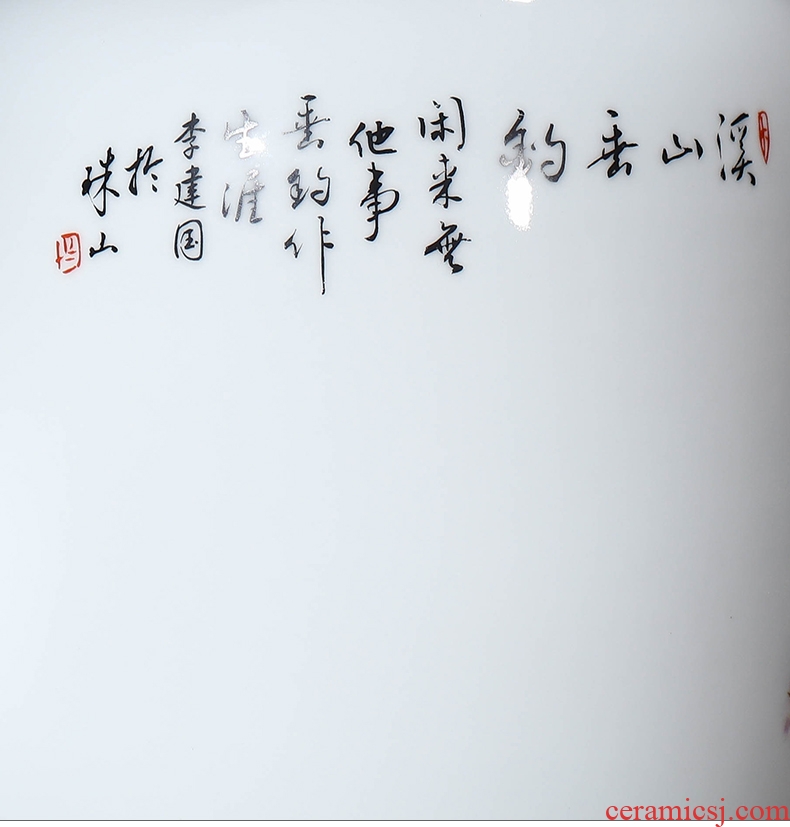 溪山垂钓
闲来無
他事
垂钓作
生涯
李建国
於
珠山
ceramicsj.com